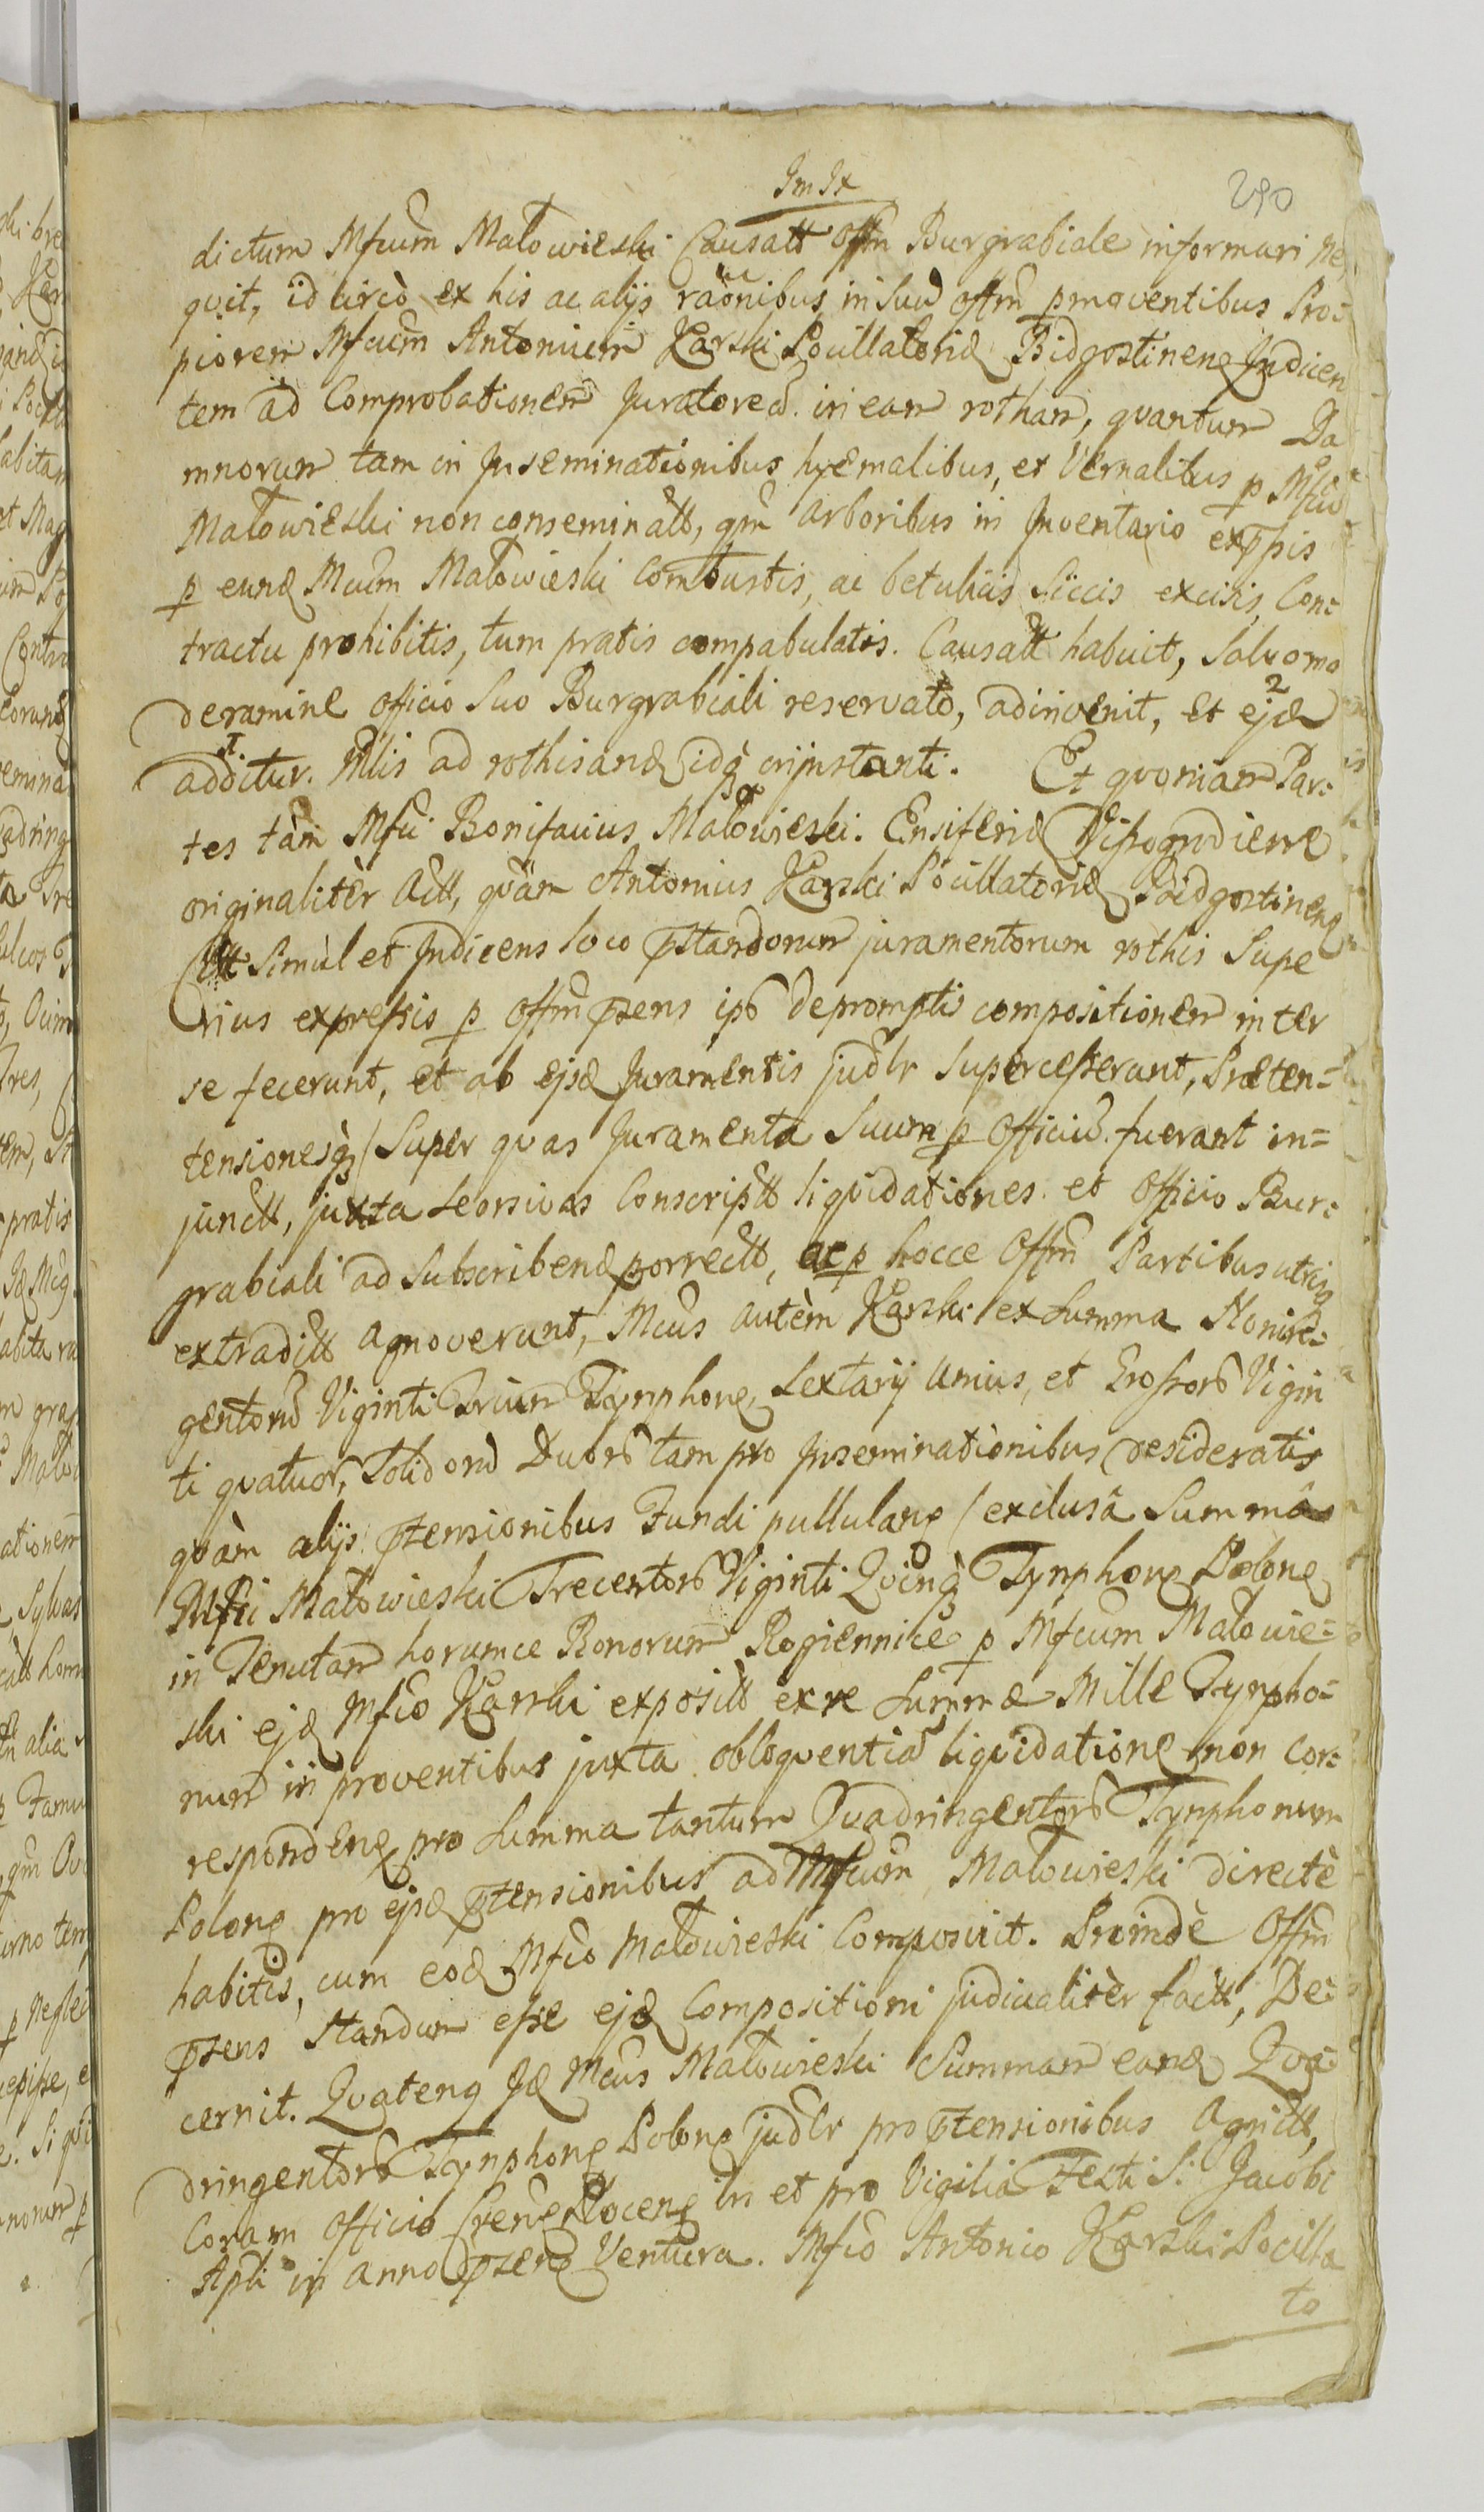 Im Ix
290
dictum Mfcum Małowieski Causatt Offm Burgrabiale informari ne
quit, id circò ex his ac alijs raõnibus in Suũ offm pmoventibus Pro-
piorem Mfcum Antonium Karski Pocillatoriđ Bidgostinenę Indicen
tem ad Comprobationem Juratoreã in eam rotham, quantum Da
mnorum tam in Inseminationibus hyemalibus, et Vernalibus p Mfcũ
Małowieski non conseminatt, qm arboribus in Inventario exppis
p eunđ Mcum Małowieski Combustis, ac betulicis Siccis excisis, Con-
tractu prohibitis, tum pratis compabulatis. Causatt habuit, Salvo mo
deramine officio Suo Burgrabiali reservato, adinvenit, et ejđ
additur. Mlis ad rothisanđ idq injustanti. Et quoniam Par-
tes tàm Mfci Bonifacius Małowieski Ensiferiđ Vissogrodiens
originalitèr Actt, quàm Antonius Karski Pocillatoriđ Bidgostinenę
Citt Simùl et Indicens loco pstandorum juramentorum rothis Supe
rius expressis p Offm psens ipõ depromptis compositionem inter
se fecerunt, et ab ejsđ Juramentis judlr Supercesserunt, Præten-
tensionesq / Super quas Juramenta Suum p Officiũ fuerant in-
junctt, juxta Seorsivas Conscriptt liquidationes et Officio Bur-
grabiali ad Subscribenđ porrectt, ac p hocce Offm Partibus utrisq
extraditt agnoverunt, Mcus autèm Karski ex Summa Nonin-
gentorũ Viginti Trium Tymphonę, Sextarij Unius, et Grossorõ Vigin
ti quatuor, Solidorũ Duorõ tam pro Inseminationibus desideratis
quàm alijs ptensionibus Fundi pullulanę / exclusâ Summâ
Mfci Małowieski Trecentorõ Viginti Quinq Tymphonę Polonę
in Tenutam horumce Bonorum Rogiennice p Mfcum Małowie-
ski ejđ Mfco Karski expositt ex re Summæ Mille Tympho-
num in proventibus juxta obloquentiã liquidationę non Cor-
respondenę pro Summa tantum Quadringentorõ Tymphonum
Polonę pro ejsđ ptensionibus ad Mfcum Małowieski directè
habitis, cum eođ Mfco Małowieski Composuit. Proindè Offm
psens Standum esse ejđ Compositioni judicialitèr factt, De-
cernit. Quatenę Iđ Mcus Małowieski Summam eanđ Qua-
dringentorõ Tymphonę Polonę judlr pro ptensionibus Agnitt,
Coram Officio Crenę Plocenę in et pro Vigilia Festi S. Jacobi
Apli in anno psenę Ventura. Mfco Antonio Karski Pocilla
to